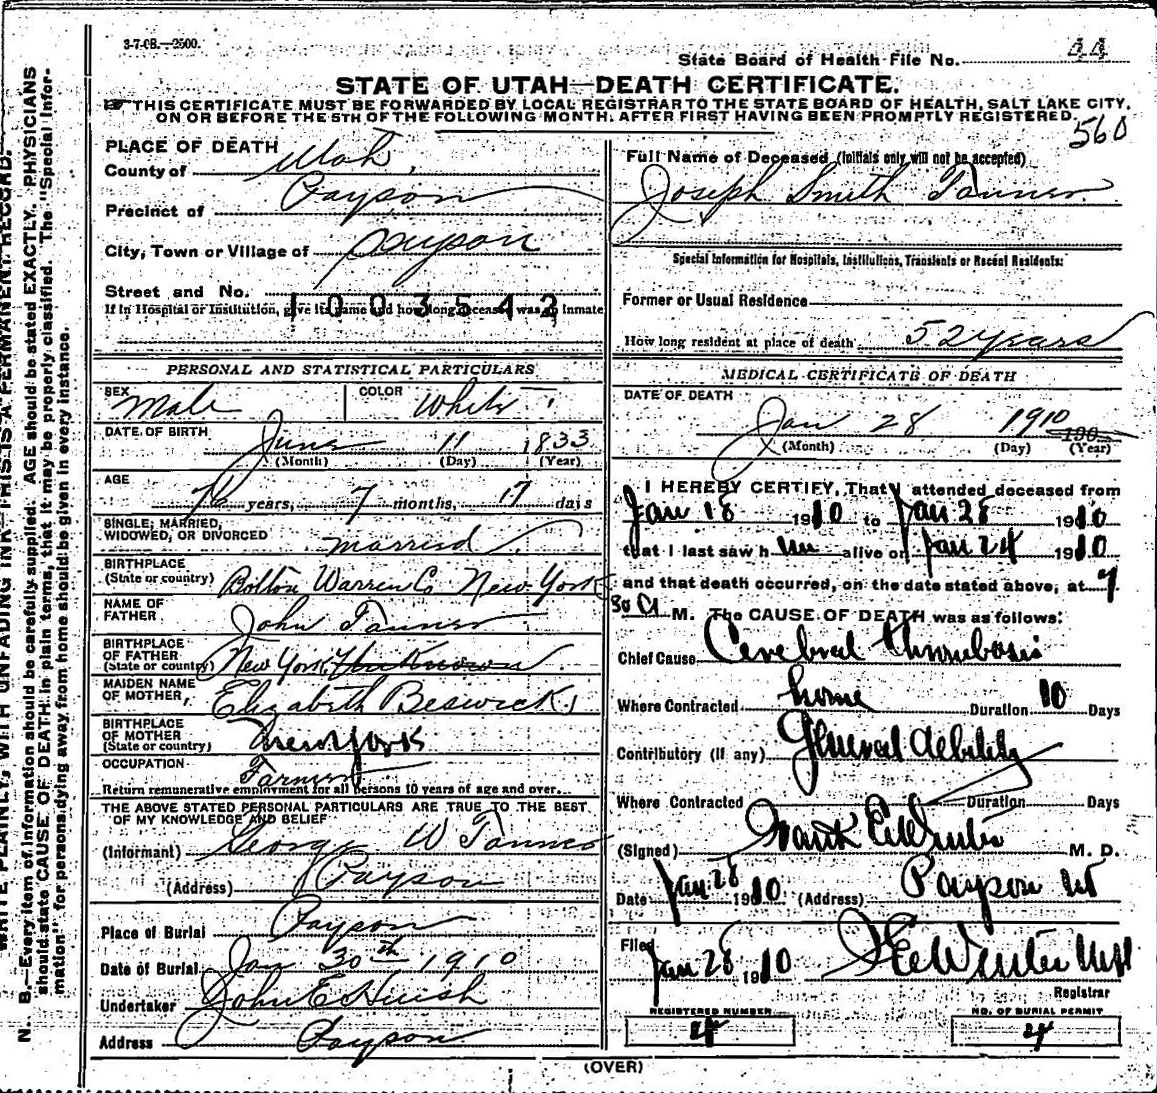 3-7-08.—2500.
State Board of Health File No. 44
STATE OF UTAH—DEATH CERTIFICATE.
THIS CERTIFICATE MUST BE FORWARDED BY LOCAL REGISTRAR TO THE STATE BOARD OF HEALTH, SALT LAKE CITY,
ON OR BEFORE THE 5TH OF THE FOLLOWING MONTH, AFTER FIRST HAVING BEEN PROMPTLY REGISTERED.
560
PLACE OF DEATH
County of Utah
Precinct of Payson
City, Town or Village of Payson
Street and No.
1003542
If in Hospital or Institution, give its name and how long deceased was an inmate
PERSONAL AND STATISTICAL PARTICULARS
SEX Male COLOR White
DATE OF BIRTH June 11 1833
(Month) (Day) (Year)
AGE 76 years, 7 months, 17 days
SINGLE, MARRIED,
WIDOWED, OR DIVORCED married
BIRTHPLACE
(State or country) Bolton Warren Co New York
NAME OF
FATHER John Tanner
BIRTHPLACE
OF FATHER
(State or country) New York Unknown.
MAIDEN NAME
OF MOTHER Elizabeth Beswick
BIRTHPLACE
OF MOTHER
(State or country) New York
OCCUPATION Farmer
Return remunerative employment for all persons 10 years of age and over
THE ABOVE STATED PERSONAL PARTICULARS ARE TRUE TO THE BEST
OF MY KNOWLEDGE AND BELIEF
(Informant) George W Tanner
(Address) Payson
Place of Burial Payson
Date of Burial Jan 30th 1910
Undertaker John E Huish
Address Payson
Full Name of Deceased (Initials only will not be accepted)
Joseph Smith Tanner
Special Information for Hospitals, Institutions, Transients or Recent Residents:
Former or Usual Residence
How long resident at place of death 52 years
MEDICAL CERTIFICATE OF DEATH
DATE OF DEATH
Jan 28 1910 190
(Month) (Day) (Year)
I HEREBY CERTIFY, That I attended deceased from
Jan 18 1910 to Jan 28 1910
that I last saw him alive on Jan 24 1910
and that death occurred, on the date stated above, at 7
30 a M. The CAUSE OF DEATH was as follows:
Chief Cause Cerebral thrombosis
Where Contracted home Duration 10 Days
Contributory (if any) General debility
Where Contracted Duration Days
(Signed) M. D.
Date Jan 28 1910 (Address) Payson Ut
Filed
Jan 28 1910
Registrar
REGISTERED NUMBER
4
NO. OF BURIAL PERMIT
4
(OVER)
WRITE PLAINLY, WITH UNFADING INK—THIS IS A PERMANENT RECORD.
N. B.—Every item of information should be carefully supplied. AGE should be stated EXACTLY. PHYSICIANS
should state CAUSE OF DEATH in plain terms, that it may be properly classified. The "Special Infor-
mation" for persons dying away from home should be given in every instance.